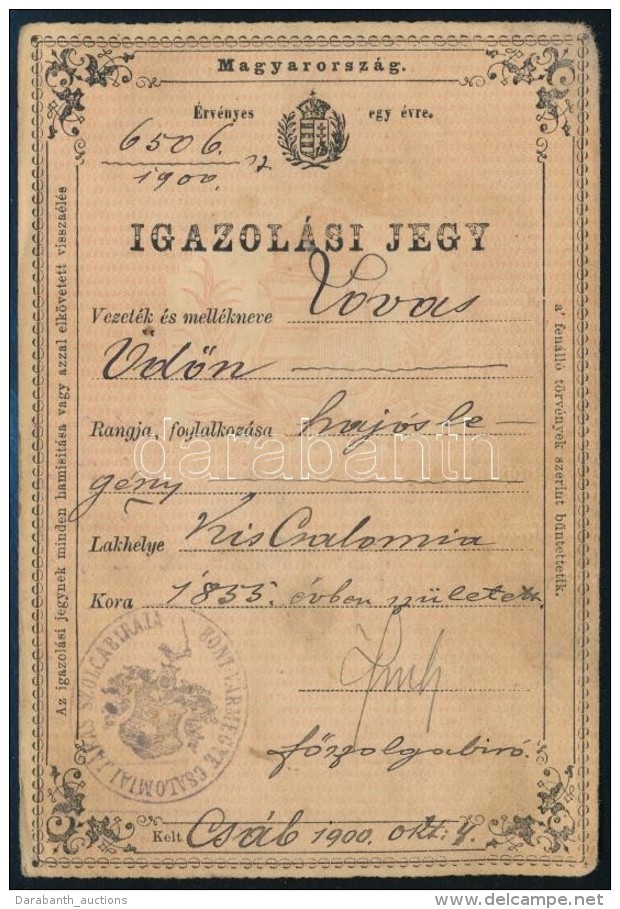 Magyarország.
Érvényes egy évre.
6506.
1900.
IGAZOLÁSI JEGY
Vezeték és mellékneve Lovas
Ödön
Rangja, foglalkozása hajósle-
gény
darabanth
Lakhelye KisCsalomia
Kora 1855. évben született.
főszolgabiró.
Kelt Csáb 1900. okt. 4.
Az igazolási jegynek minden hamisítása vagy azzal elkövetett visszaélés
a' fenálló törvények szerint büntettetik.
HONT VÁRMEGYE CSALOMIAI JÁRÁS SZOLGABIRÁJA
Darabanth_auctions
delcampe.net